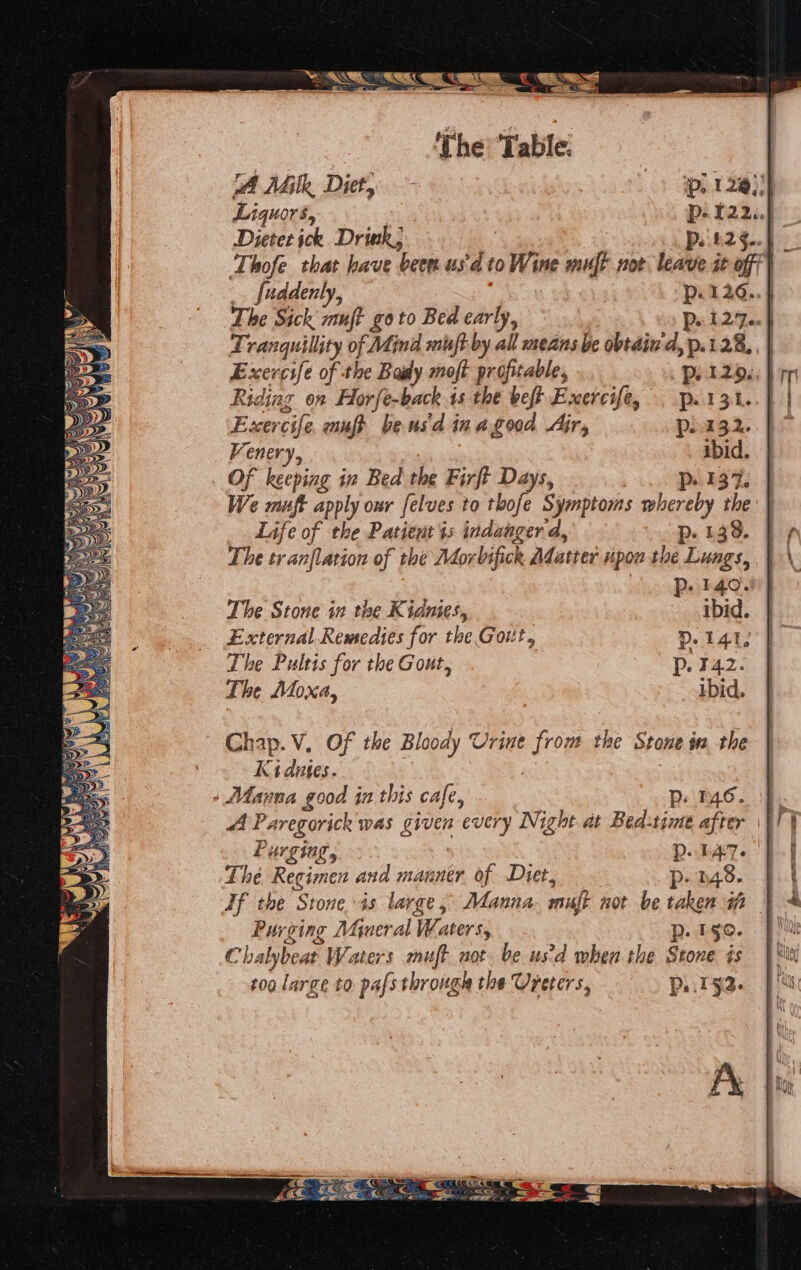 The Table.
A Milk Diet, p. 120.
Liquors, p. 122.
Dieterick Drink; p. 125.
Thoſe that have been us'd to Wine muſt not leave it off
ſuddenly, p. 126.
The Sick muſt go to Bed early, p. 127.
Tranquillity of Mind muſt by all means be obtain'd, p. 128.
Exerciſe of the Body moſt profitable, p. 129.
Riding on Horſe-back is the beſt Exerciſe, p. 131.
Exerciſe muſt be us'd in a good Air, p. 132.
Venery, ibid.
Of keeping in Bed the Firſt Days, p. 137.
We muſt apply our ſelves to thoſe Symptoms whereby the
Life of the Patient is indanger'd, p. 138.
The tranſlation of the Morbifick Matter upon the Lungs,
p. 140.
The Stone in the Kidnies, ibid.
External Remedies for the Gout, p. 141.
The Pultis for the Gout, p. 142.
The Moxa, ibid.
Chap. V. Of the Bloody Urine from the Stone in the
Kidnies.
Manna good in this caſe, p. 146.
A Paregorick was given every Night at Bed-time after
Purging, p. 147.
The Regimen and manner of Diet, p. 148.
If the Stone is large, Manna muſt not be taken in
Purging Mineral Waters, p. 150.
Chalybeat Waters muſt not be us'd when the Stone is
too large to paſs through the Ureters, p. 152.
A